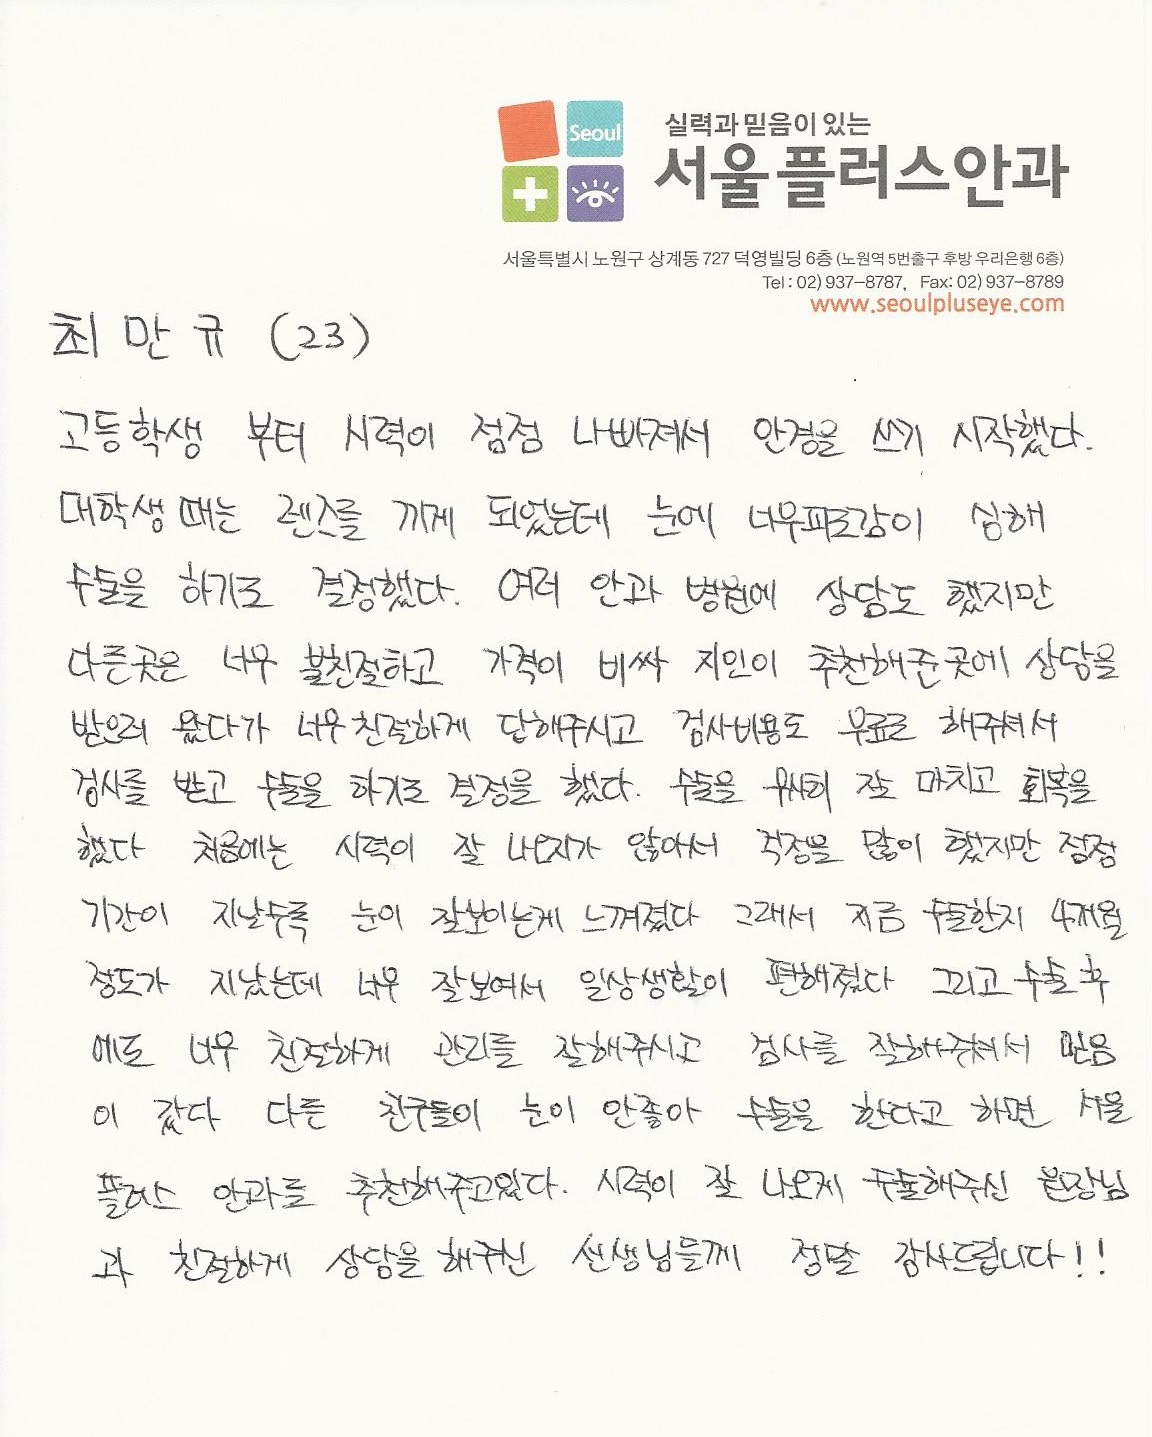 Seoul
실력과 믿음이 있는
서울플러스안과
서울특별시 노원구 상계동 727 덕영빌딩 6층 (노원역 5번출구 후방 우리은행 6층)
Tel : 02) 937-8787, Fax: 02) 937-8789
www.seoulpluseye.com
최 만 규 (23)
고등학생 부터 시력이 점점 나빠져서 안경을 쓰기 시작했다.
대학생때는 렌즈를 끼게 되었는데 눈에 너무피로감이 심해
수술을 하기로 결정했다. 여러 안과 병원에 상담도 했지만
다른곳은 너무 불친절하고 가격이 비싸 지인이 추천해준곳에 상담을
받으러 왔다가 너무친절하게 답해주시고 검사비용도 무료로 해주셔서
검사를 받고 수술을 하기로 결정을 했다. 수술을 무사히 잘 마치고 회복을
했다 처음에는 시력이 잘 나오지가 않아서 걱정을 많이 했지만 점점
기간이 지날수록 눈이 잘보이는게 느껴졌다 그래서 지금 수술한지 4개월
정도가 지났는데 너무 잘보여서 일상생활이 편해졌다 그리고 수술 후
에도 너무 친절하게 관리를 잘해주시고 검사를 잘해주셔서 믿음
이 갔다 다른 친구들이 눈이 안좋아 수술을 한다고 하면 서울
플러스 안과를 추천해주고있다. 시력이 잘 나오게 수술해주신 원장님
과 친절하게 상담을 해주신 선생님들께 정말 감사드립니다!!